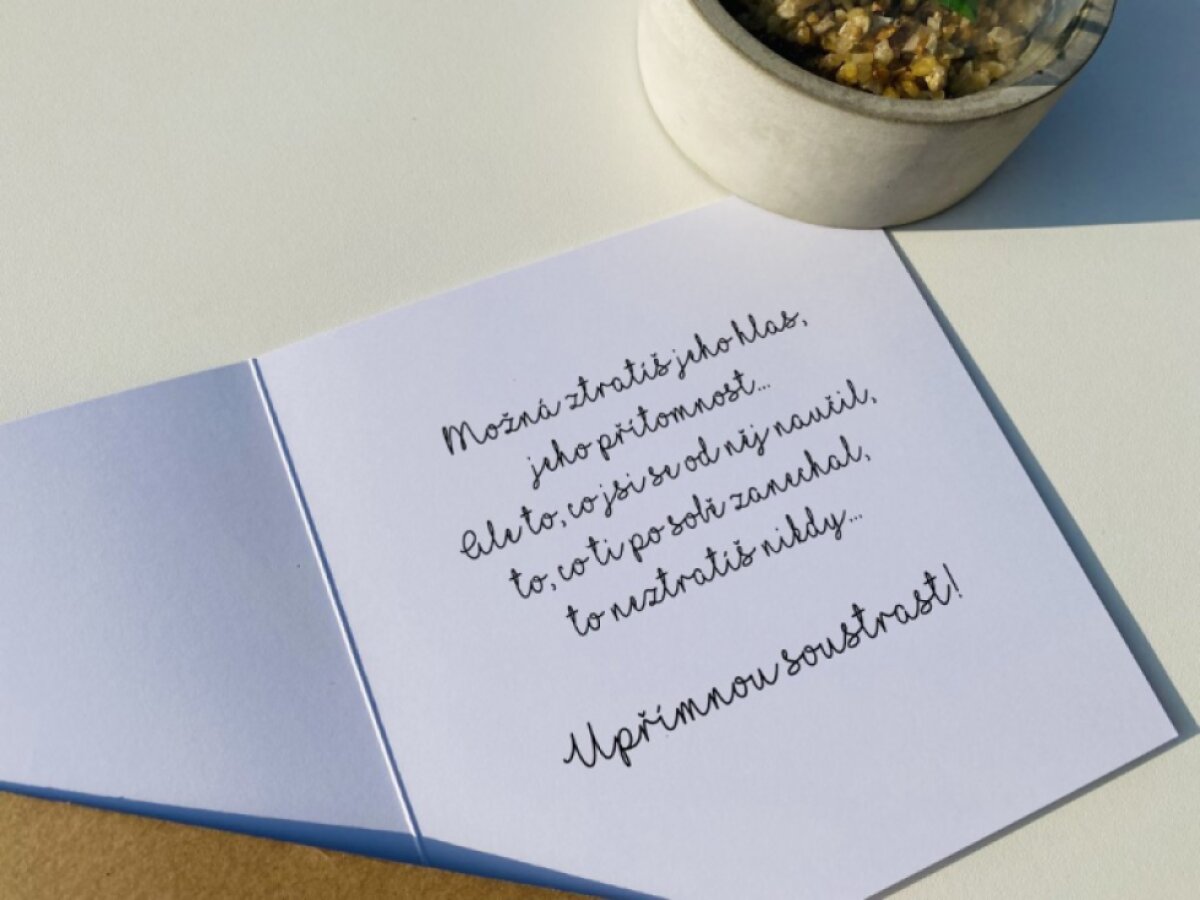 Možná ztratíš jeho hlas,
jeho přítomnost...
Ale to, co jsi se od něj naučil,
to, co ti po sobě zanechal,
to neztratíš nikdy...
Upřímnou soustrast!